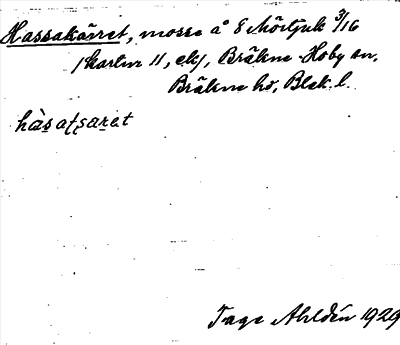 Hassakärret, mosse å 8 Mörtjuk 3/16
(kartbl 11, ek), Bräkne-Hoby sn,
Bräkne hd, Blek. l.
hàsatsaret
Tage Ahldén 1929